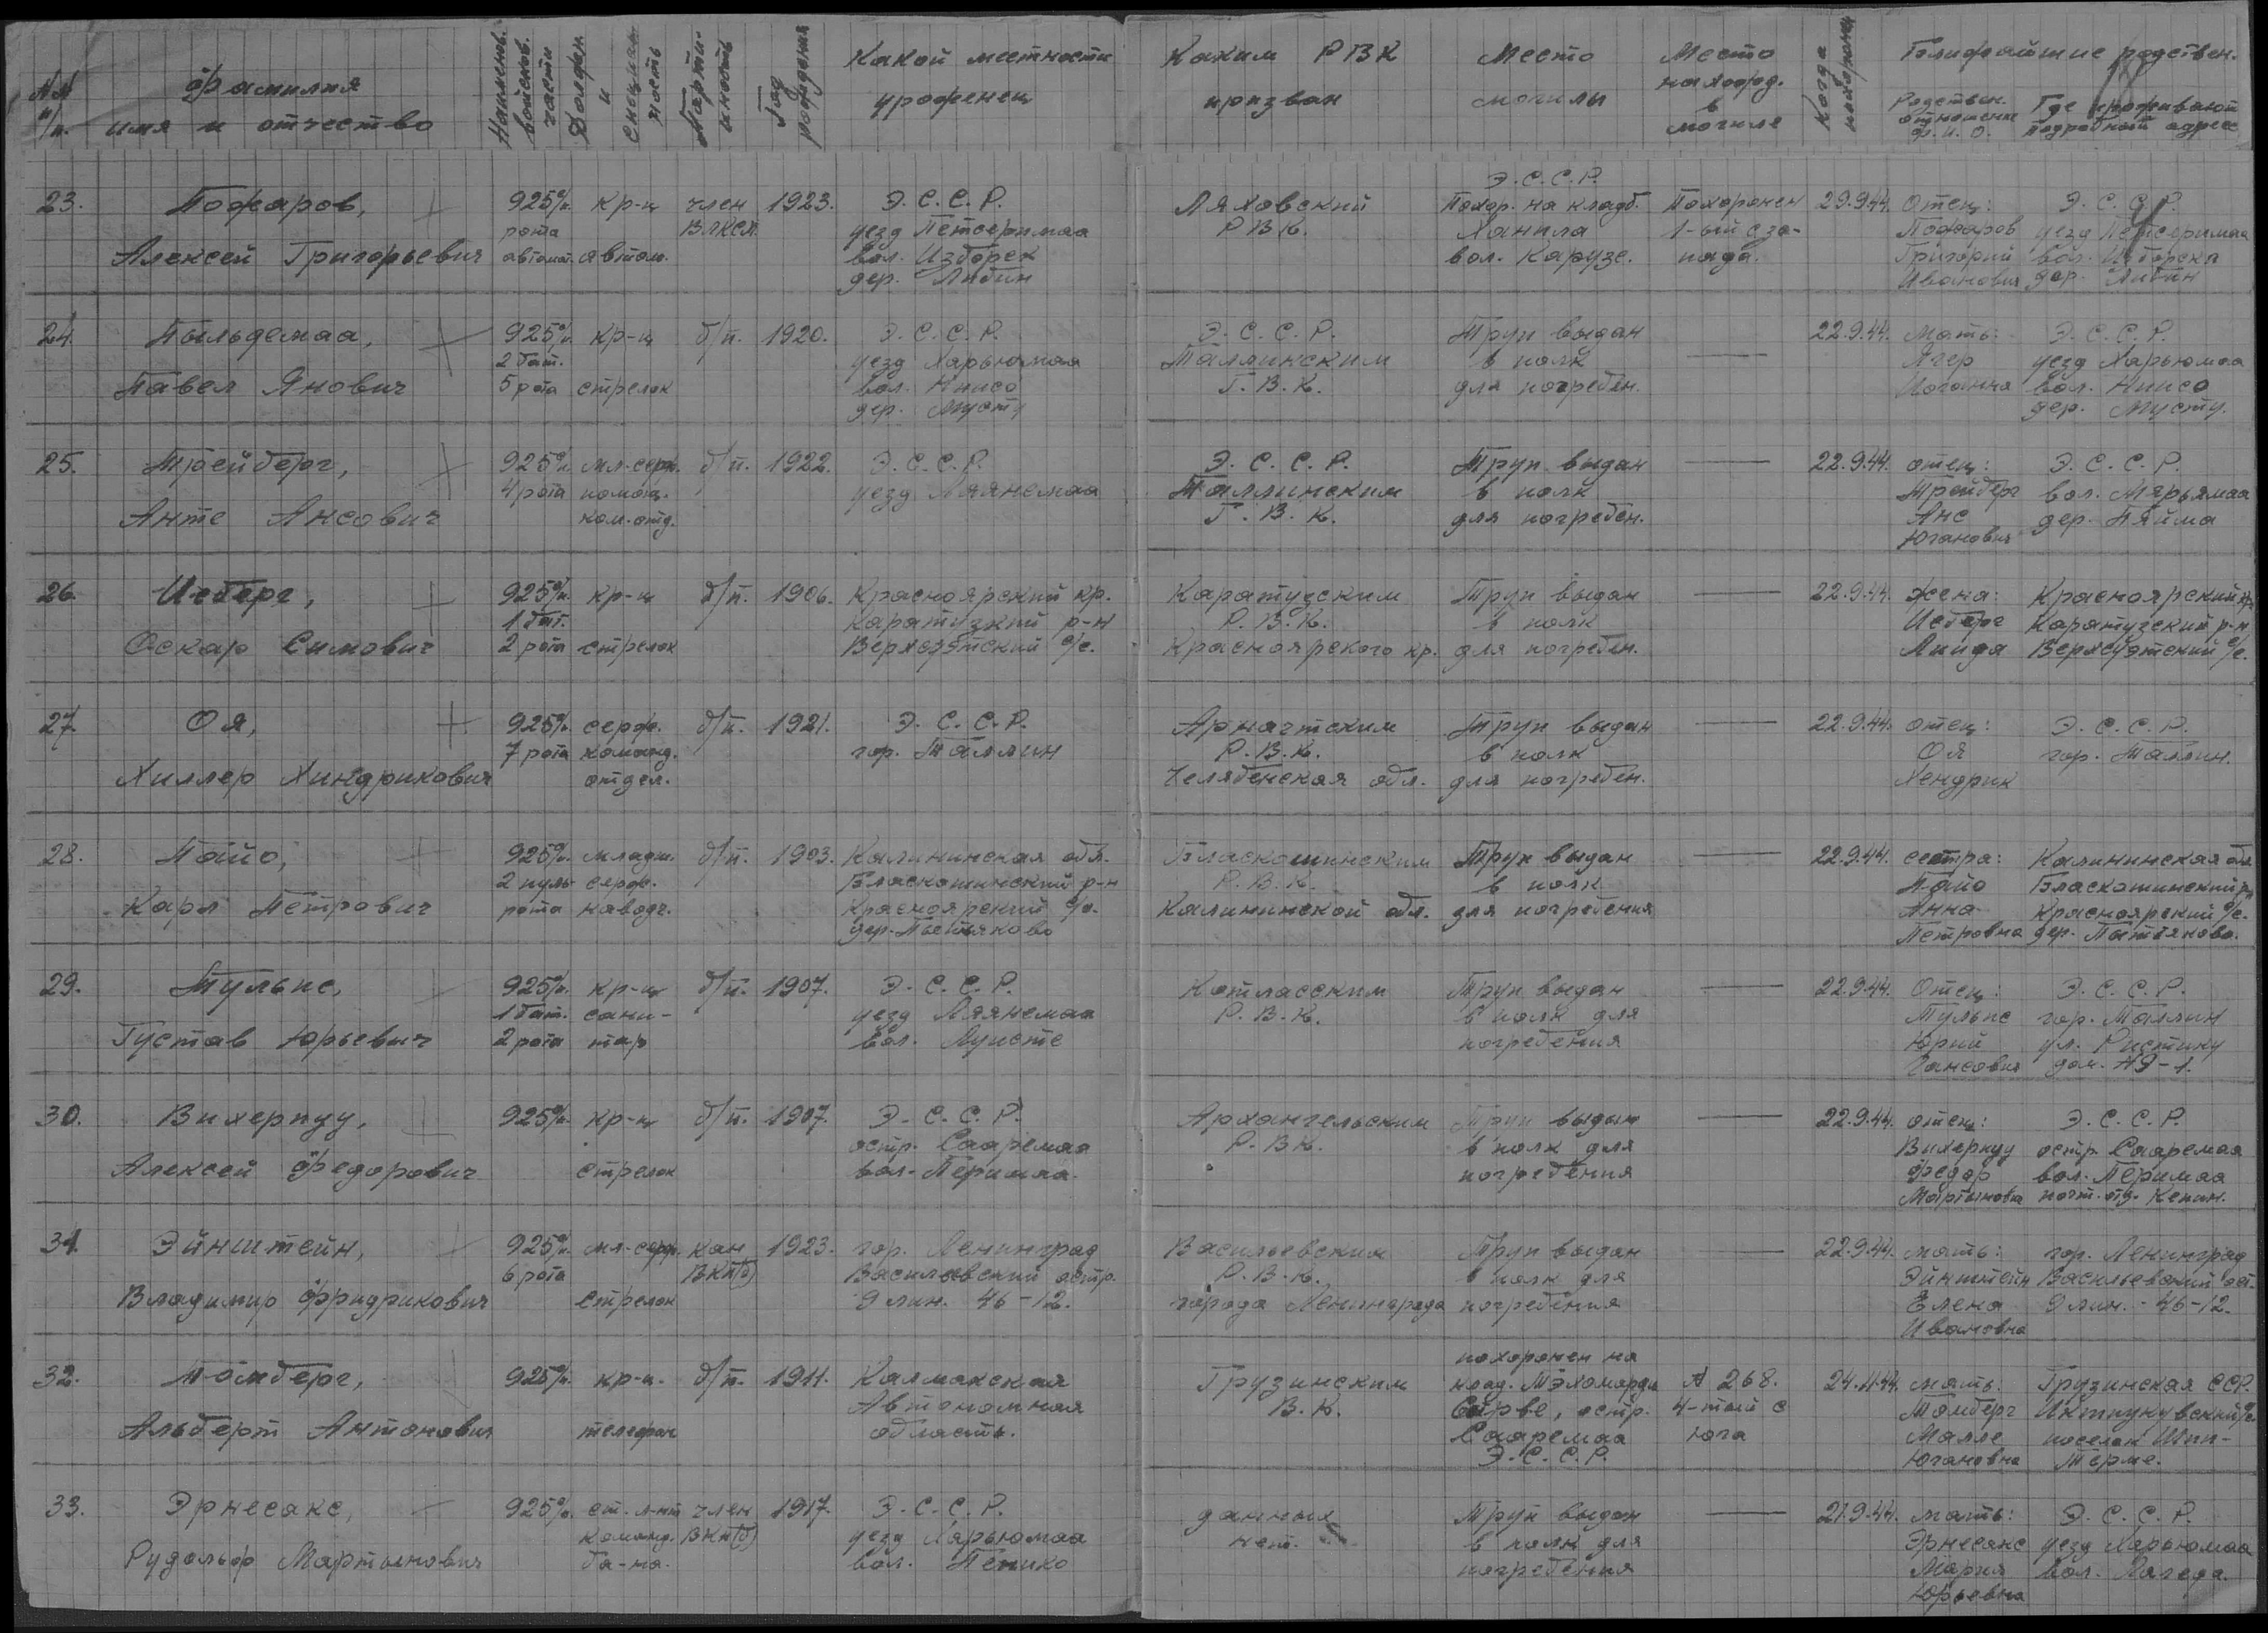 №№ п/п.
Фамилия
имя и отчество
Наименов. войсков. части
Должн. и специальность
Партийность
Год рождения
Какой местности
уроженец
Каким РВК
призван
Место
могилы
Место
наход.
в
могиле
Когда похоронен
Ближайшие родствен.
Родствен. отношение ф. и. о.
Где проживают подробный адрес
23. Пожаров, 925 с/п. кр-ц член 1923. Э. С. С. Р.
рота ВЛКСМ уезд Петсеримаа
Алексей Григорьевич автомат. автом. вол. Изборск
дер. Лыбин
Э. С. С. Р.
Ляховский Похор. на кладб. Похоронен 29.9.44. Отец: Э. С. С. Р.
Р В К. Ханила 1-ый с за- Пожаров уезд Петсеримаа
вол. Карузе. пада. Григорий вол. Изборска
Иванович дер. Лыбин
24. Пыльдемаа, 925 с/п. кр-ц б/п. 1920. Э. С. С. Р.
2 бат. уезд Харьюмаа
Павел Янович 5 рота стрелок вол. Ниссо
дер. Мусту
Э. С. С. Р. Труп выдан 22.9.44. мать: Э. С. С. Р.
Таллинским в полк Ягер уезд Харьюмаа
Г. В. К. для погребен. Иоганна вол. Ниссо
дер. Мусту.
25. Трейберг, 925 с/п. мл. серж. б/п. 1922. Э. С. С. Р.
4 рота помощ. уезд Ляянемаа
Антс Ансович ком. отд.
Э. С. С. Р. Труп выдан 22.9.44. отец: Э. С. С. Р.
Таллинским в полк Трейберг вол. Мярьямаа
Г. В. К. для погребен. Анс дер. Пяйма
Юганович
26. Исберг, 925 с/п. кр-ц б/п. 1906. Красноярский кр.
1 бат. Каратузкий р-н
Оскар Симович 2 рота стрелок Верхсуэтский с/с.
Каратузским Труп выдан 22.9.44. жена: Красноярский кр.
Р. В. К. в полк Исберг Каратузский р-н
Красноярского кр. для погребен. Линда Верхсуэтский с/с.
27. Оя, 925 с/п. серж. б/п. 1921. Э. С. С. Р.
7 рота команд. гор. Таллин
Хиллер Хиндрикович отдел.
Труп выдан 22.9.44. отец: Э. С. С. Р.
Р. В. К. в полк Оя гор. Таллин.
Челябенская обл. для погребен. Хендрик
28. Пайо, 925 с/п. младш. б/п. 1903. Калининская обл.
2 пуль серж. Бласкошинский р-н
Карл Петрович рота наводч. Красноярский с/с.
дер.
Бласкошинским Труп выдан 22.9.44. сестра: Калининская обл.
Р. В. К. в полк Пайо Бласкошинский р-н
Калининской обл. для погребения Анна Красноярский с/с.
Петровна дер.
29. Тульпс, 925 с/п. кр-ц б/п. 1907. Э. С. С. Р.
1 бат. сани- уезд Ляянемаа
Густав Юрьевич 2 рота тар вол. Луисте
Котласским Труп выдан 22.9.44. Отец: Э. С. С. Р.
Р. В. К. в полк для Тульпс гор. Таллин
погребения Юрий ул. Ристику
Гансович дом.
30. Вихерпуу, 925 с/п. кр-ц б/п. 1907. Э. С. С. Р.
остр. Сааремаа
Алексей Федорович стрелок вол. Перимаа.
Архангельским Труп выдан 22.9.44. отец: Э. С. С. Р.
Р. В К. в полк для Вихерпуу остр. Сааремаа
погребения Федор вол. Перимаа
почт. отд.
31. Эйнштейн, 925 с/п. мл. серж. кан 1923. гор. Ленинград
6 рота ВКП(б) Василевский остр.
Владимир Фридрикович стрелок 9 лин. 46-12.
Васильевским Труп выдан 22.9.44. мать: гор. Ленинград
Р. В. К., в полк для Эйнштейн Васильевский ост.
города Ленинграда погребения Елена 9 лин. - 46-12.
Ивановна
32. Томберг, 925 с/п. кр-ц. б/п. 1911. Калмакская
Автономная
Альберт Антонович телефон область.
похоронен на
Грузинским клад. № 268. 24.11.44. мать: Грузинская ССР.
В. К. Сырве, остр. 4-тый с Томберг
Сааремаа юга Малле поселок
Э. С. С. Р. Югановна
33. Эрнесакс, 925 с/п. ст. л-нт член 1917. Э. С. С. Р.
команд. ВКП(б) уезд Харьюмаа
Рудольф Мартынович ба-на. вол. Пенико
данных Труп выдан 21.9.44. мать: Э. С. С. Р.
нет. в полк для Эрнесакс уезд Харьюмаа
погребения Мария вол. Лагеда.
Юрьевна